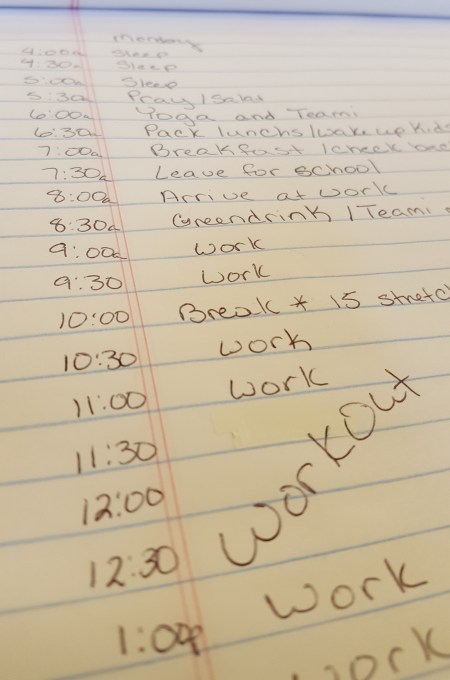 Monday
4:00a Sleep
4:30a Sleep
5:00a Sleep
5:30a Pray / Salat
6:00a Yoga and Teami
6:30a Pack lunchs / wake up Kids
7:00a Breakfast / check
7:30a Leave for school
8:00a Arrive at work
8:30a Greendrink / Teami
9:00a work
9:30 work
10:00 Break * 15 stretc
10:30 work
11:00 work
11:30
12:00 workout
12:30
1:00p work
work